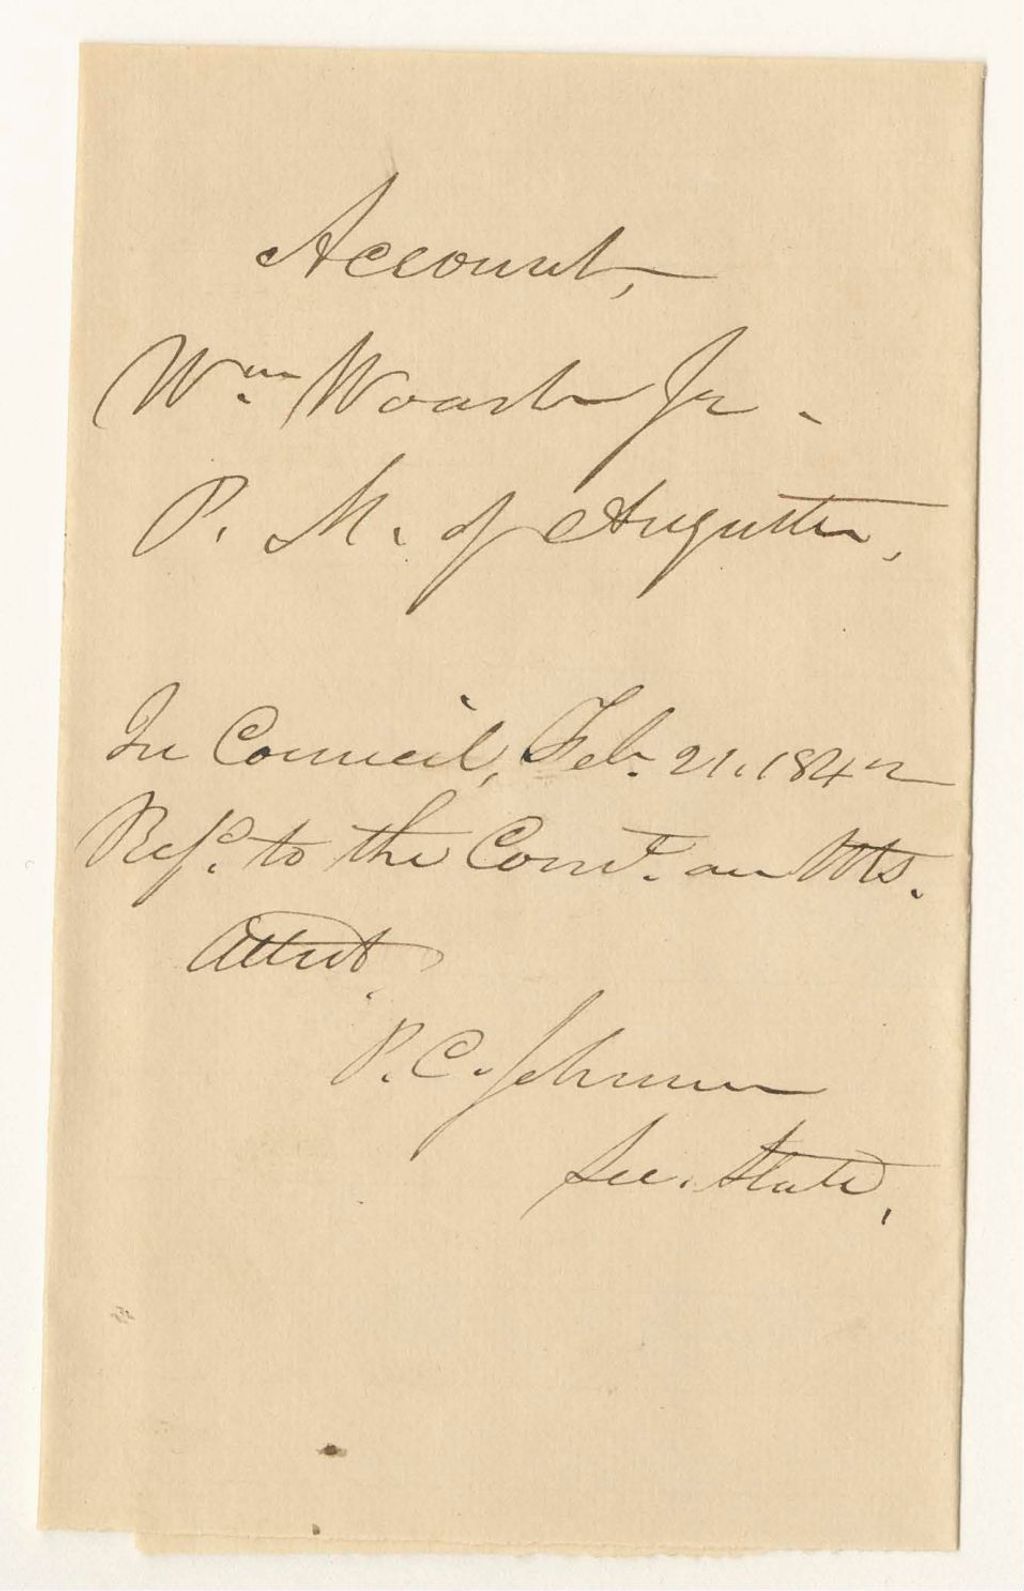 Account,
Wm. Woart Jr.
P. M. of Augusta,
In Council, Feb. 21. 1842
Refd. to the Comt. on Wts.
Attest.
P. C. Johnson
Sec. State,